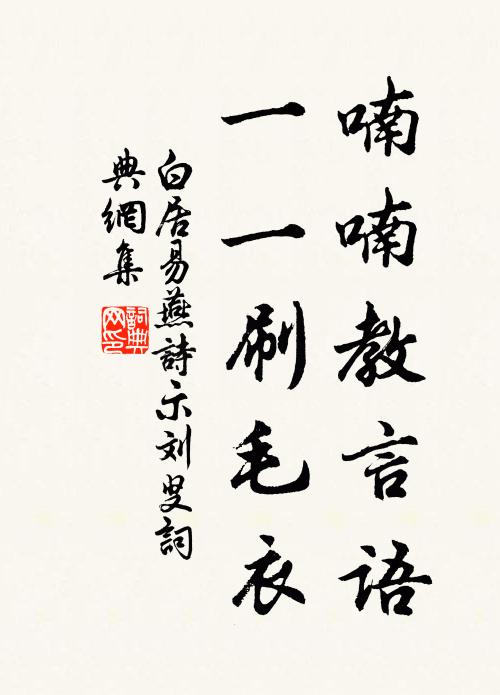 喃喃教言語
一一刷毛衣
白居易燕詩示刘叟詞
典網集
詞典
网印